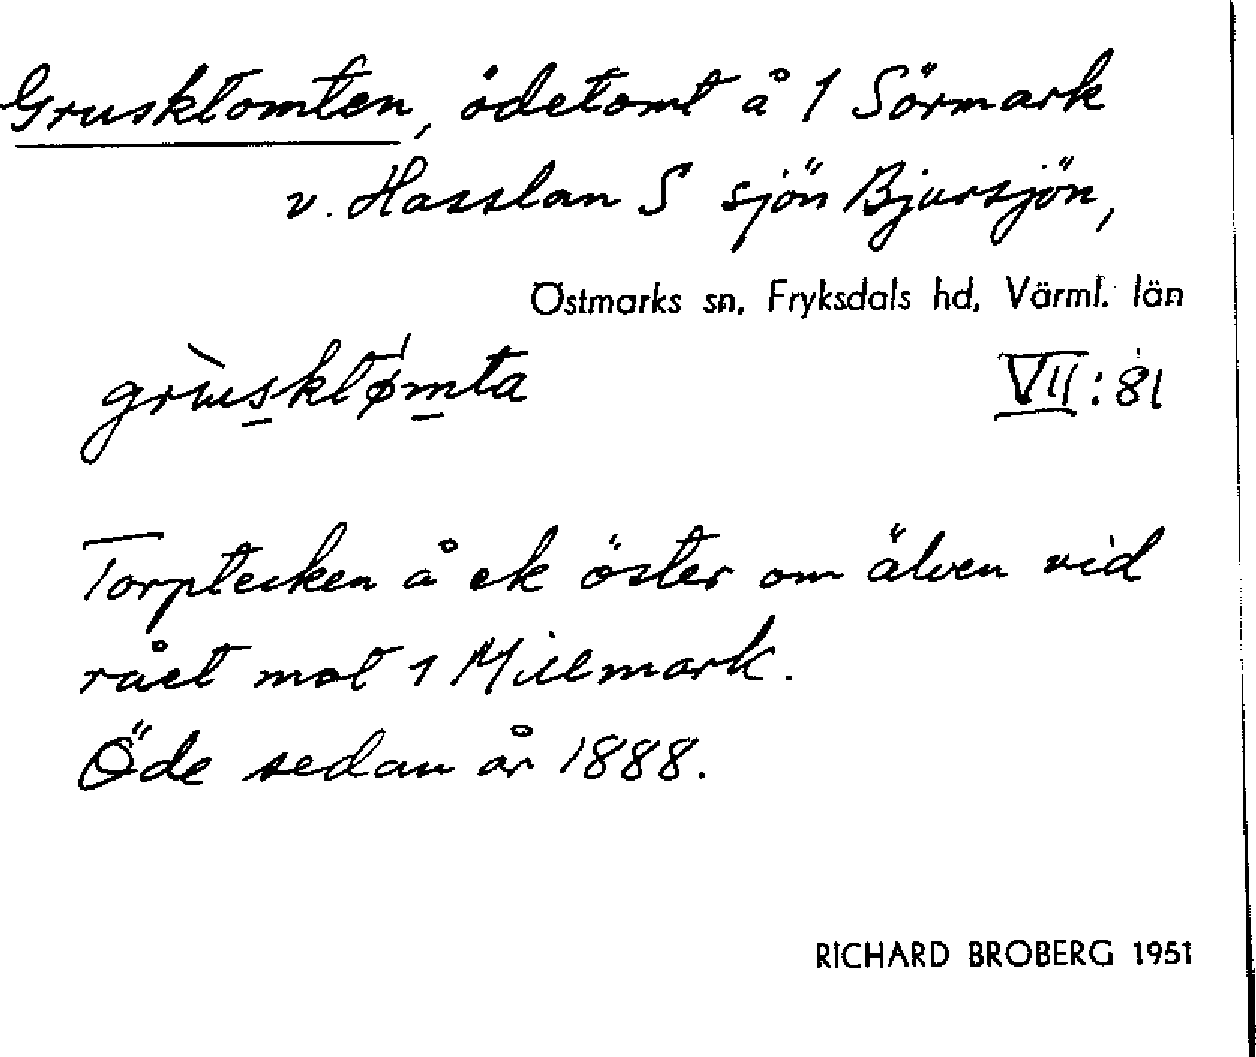 Grusktomten, ödetomt å 1 Sörmark
v. Hasslan S sjön Bjursjön,
Östmarks sn, Fryksdals hd, Värml. län
grùsktø̍mta VII:81
Torptecken å ek öster om älven vid
rået mot 1 Millmark.
Öde sedan år 1888.
RICHARD BROBERG 1951